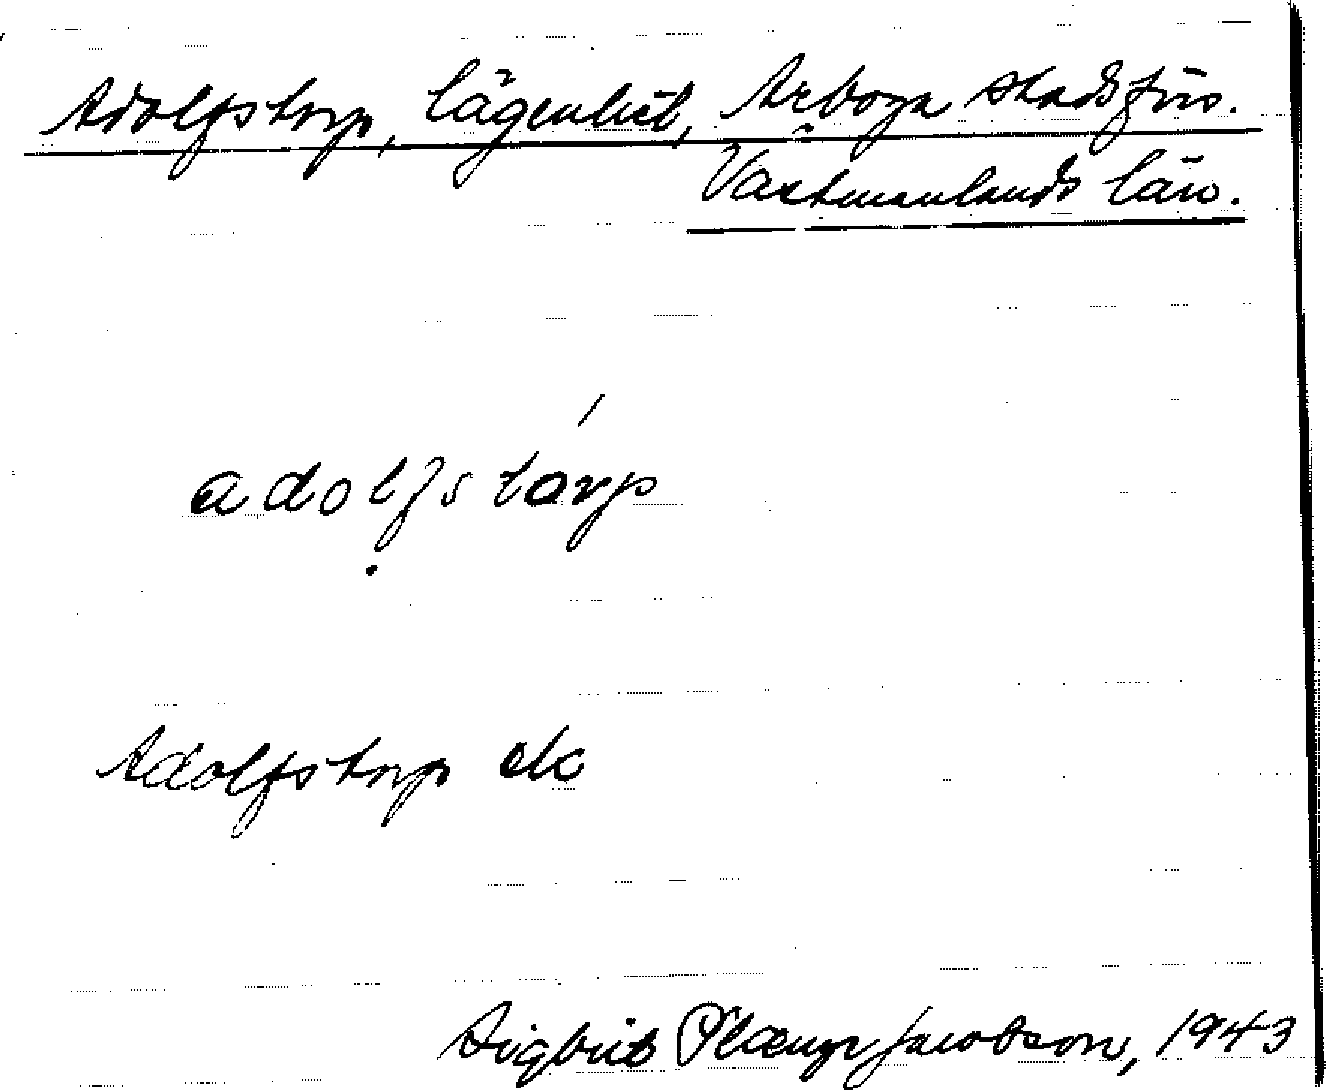 Adolfstorp, lägenhet, Arboga stadsförs.
Västmanlands län.
adolfstorp
Adolfstorp ek
Sigbrit Plænge Jacobson, 1943